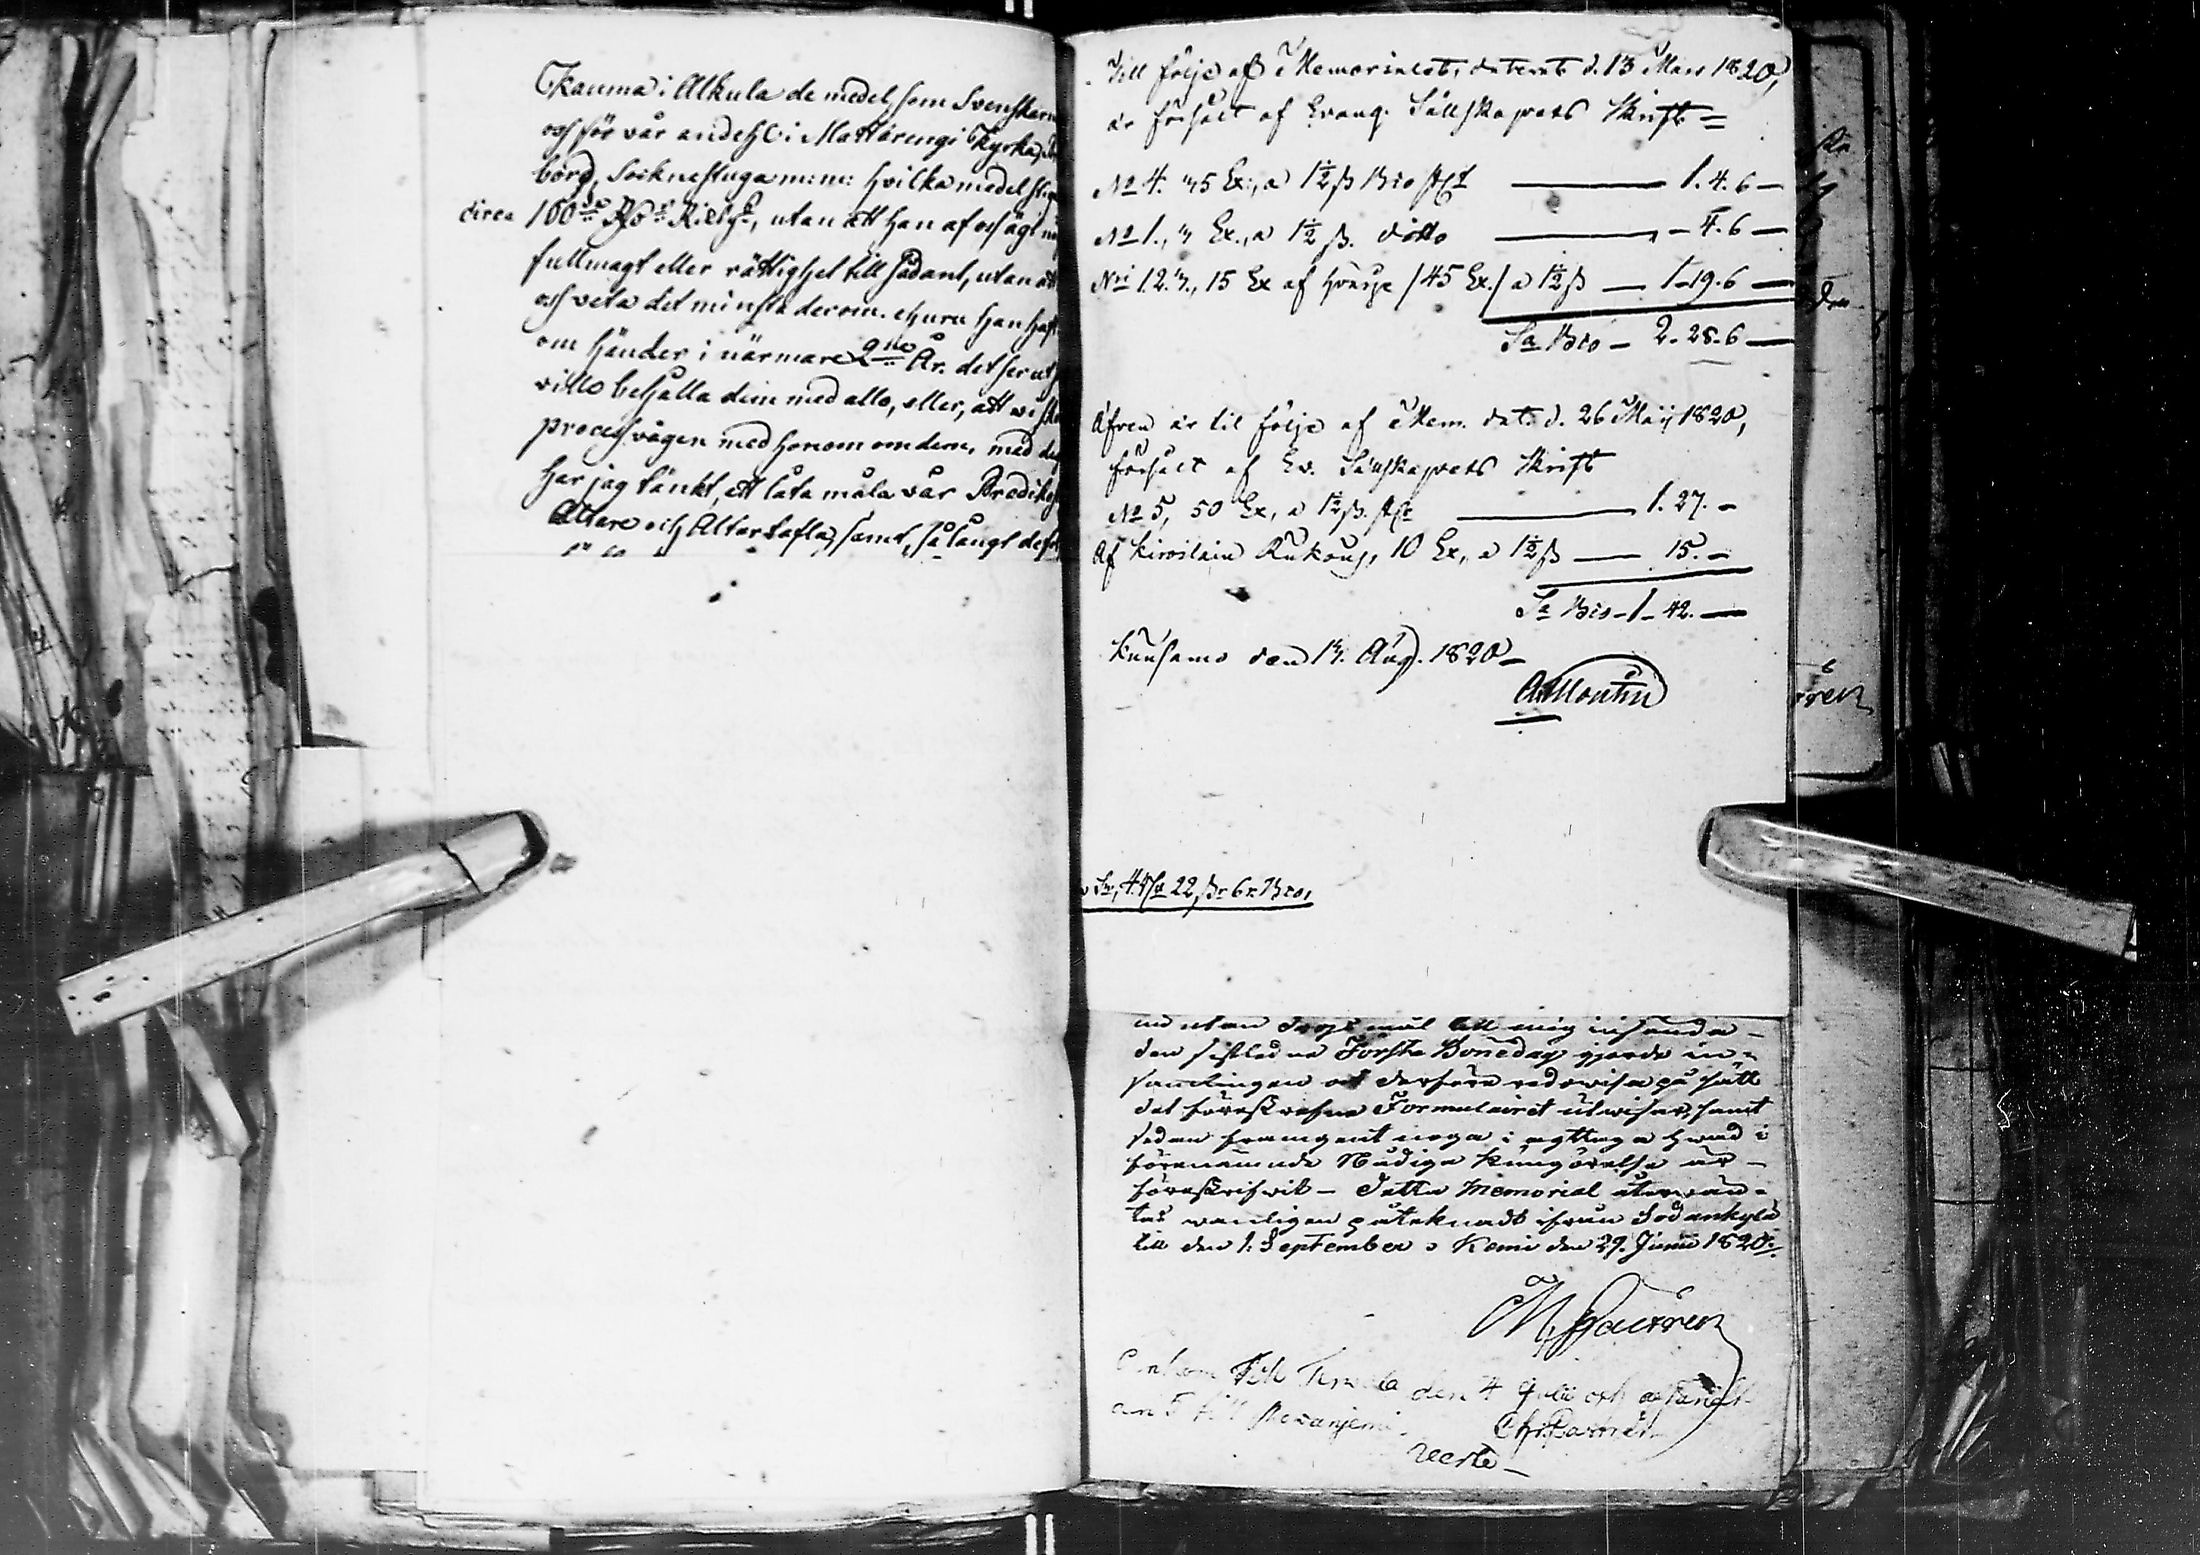 Kauma i Alkula de medel, som Svenskarne
oss för vår andehl i Mattärengi Kyrka,
bord, Socknestuga m:m: hvilka medel stiga
circa 100de Rdr Riksg:, utan att han af oss ägt
fullmagt eller rättighet till sådant, utan att
oss veta det minsta derom. Huru han haft
om händer i närmare 2ne År. det ser ut
ville behålla dem med allo, eller, att vi
process vägen med honom om dem. med
har jag tänkt, att låta måla vår Predik
Altare och Altartafla, samt, så långt de
Till följe af Memorialet, daterat d. 13 Mars 1820,
är försålt af Evang. Sällskapets Skrift =
No 4. 35 Ex:, a 1½ ß Bco st. — 1. 4. 6 —
No 1., 3 Ex., a 1½ ß. ditto — 4. 6 —
Nri 1. 2. 3., 15 Ex af hvarje /45 Ex./ a 1½ ß — 1. 19. 6 —
Sa Bco — 2. 28. 6 —
Äfven är til följe af Mem. dat. d. 26 Maij 1820,
försålt af Ev. Sällskapets Skrift
No 5, 50 Ex, a 1½ ß. st — 1. 27. —
Af Kivoilain Rukous, 10 Ex, a 1½ ß — 15. —
Sa Bco — 1 — 42. —
Kuusamo den 13. Aug. 1820 —
A Montin
4 22 ß 6 r. Bco,
utan drögsmål till mig insända
den sistledne Första Bönedag gjorda in-
samlingen och derföre redovisa på sätt
det föreskrefne Formulairet utvisar, samt
sedan framgent noga i agttaga hvad i
förenämnde Nådiga Kungörelse är
föreskrifvit — Detta Memorial återvän-
tas vanligen påteknadt ifrån Sodankylä
till den 1. September. Kemi den 29. Junii 1820.
M. Paurren
till Tervola den 4 Julii och afsändt
den 5 till Rovanjemi.